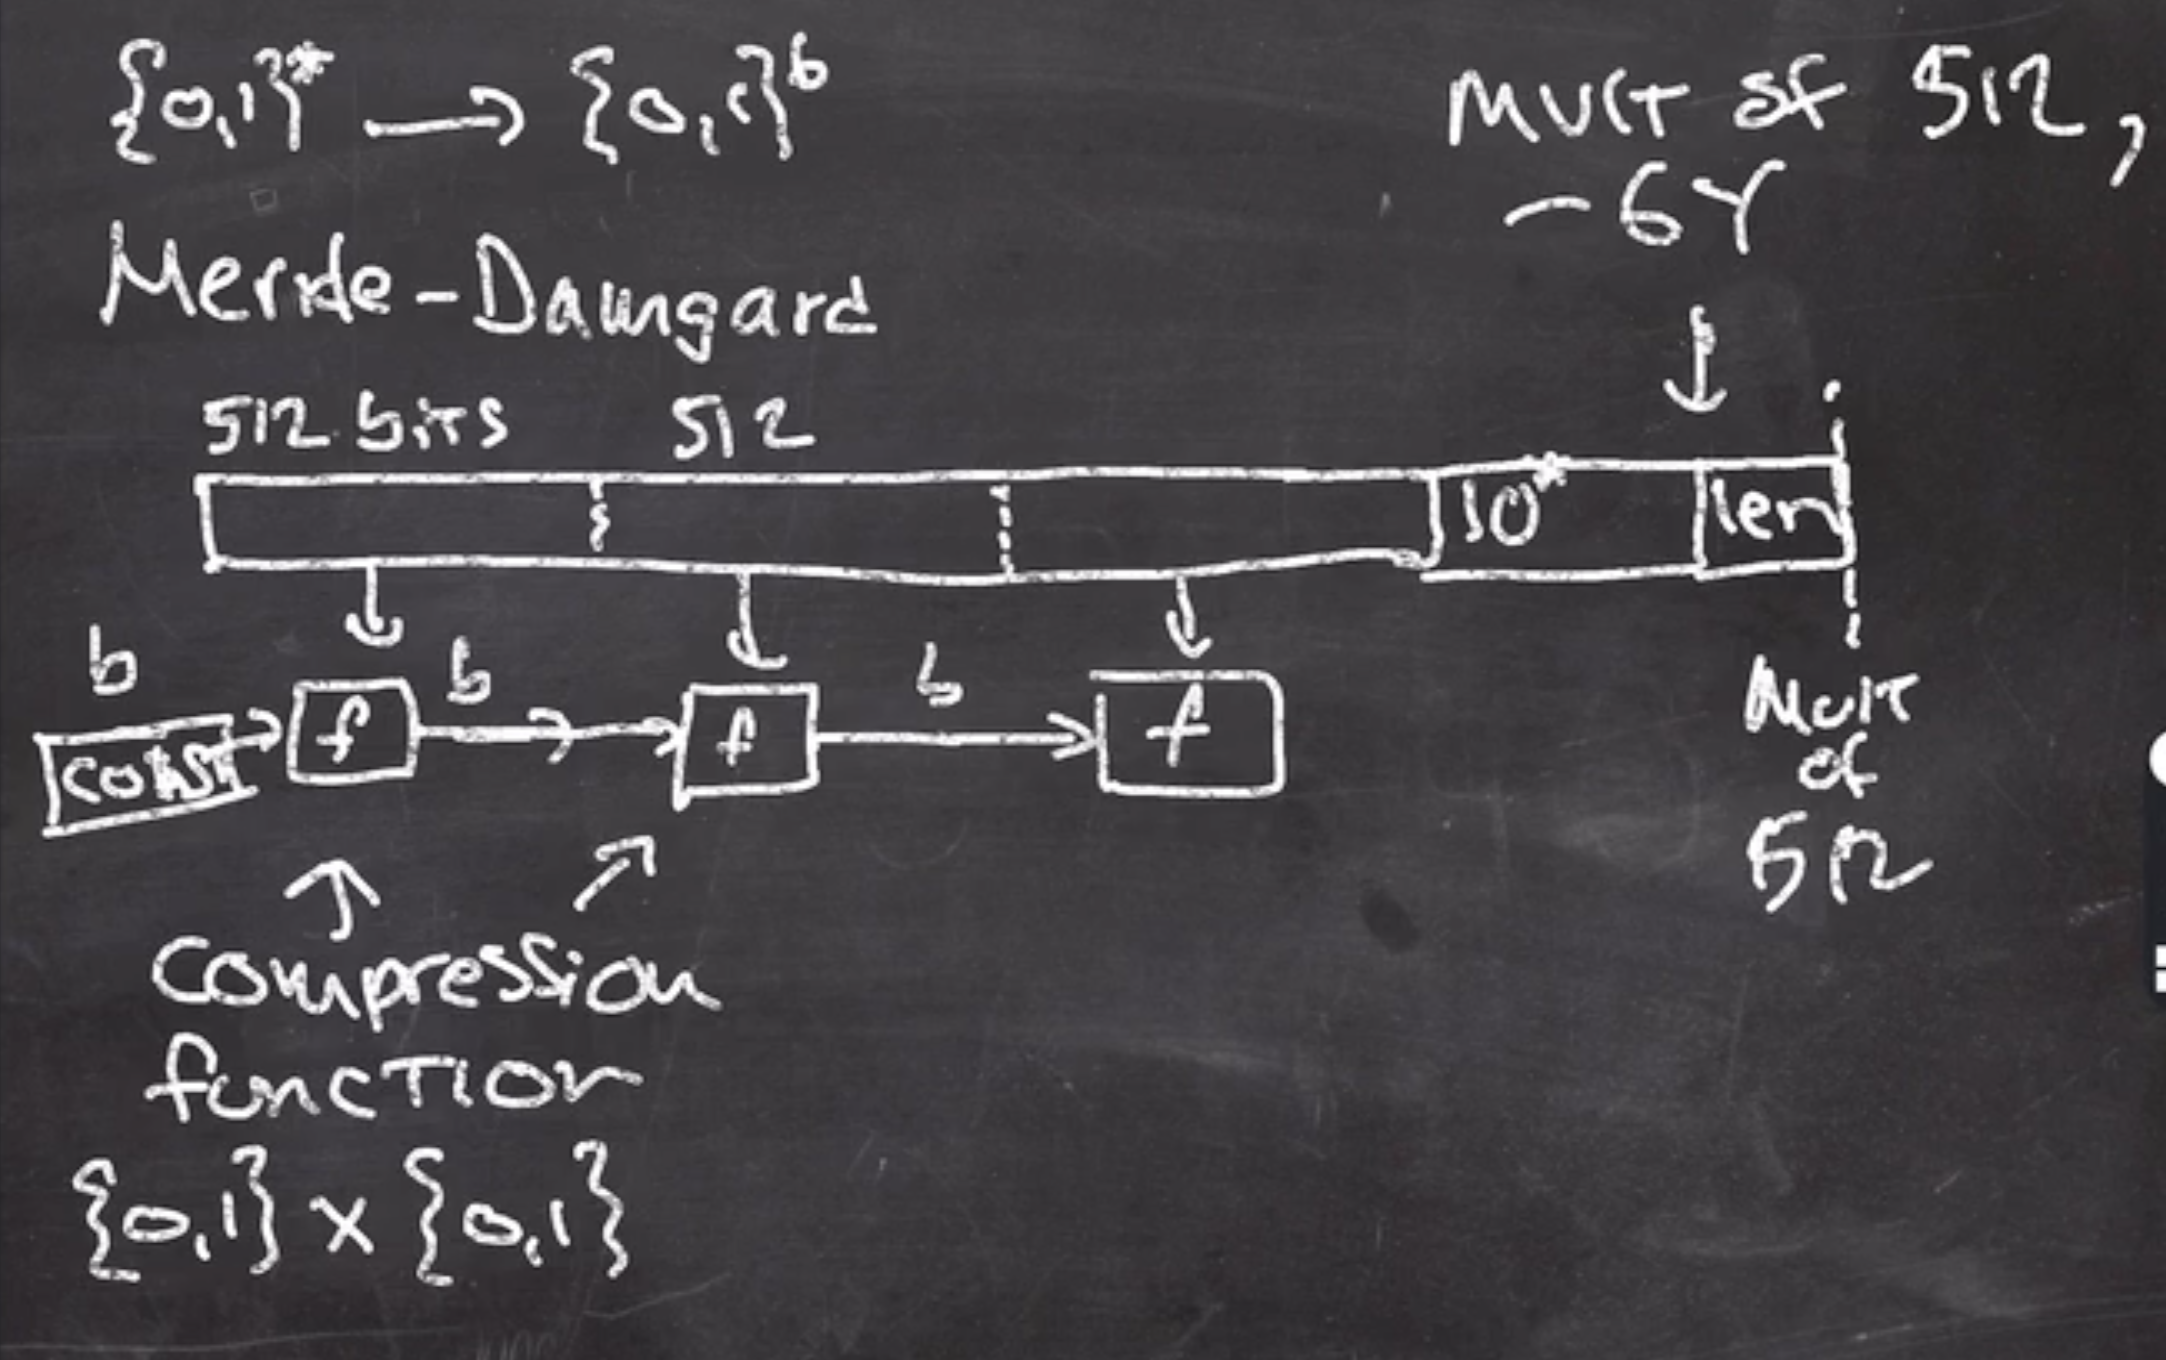 {0,1}* → {0,1}^b
Mult of 512,
-64
Merkle-Damgard
512 bits 512
10* len
b b b
const f f f
Mult
of
512
Compression
function
{0,1} x {0,1}